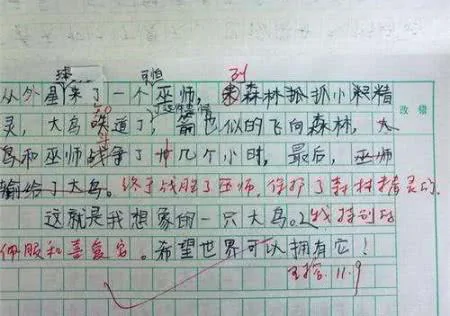 球 可怕 到
从外星来了一个巫师，来森林抓抓小粿精
灵，大鸟知道了，箭也似的飞向森林，大
鸟和巫师战争了十几个小时，最后，巫师
输给了大鸟。终于战胜了巫师，保护了森林精灵的
这就是我想象的一只大鸟。我特别的
佩服和喜爱它。希望世界可以拥有它！
11.9
改错